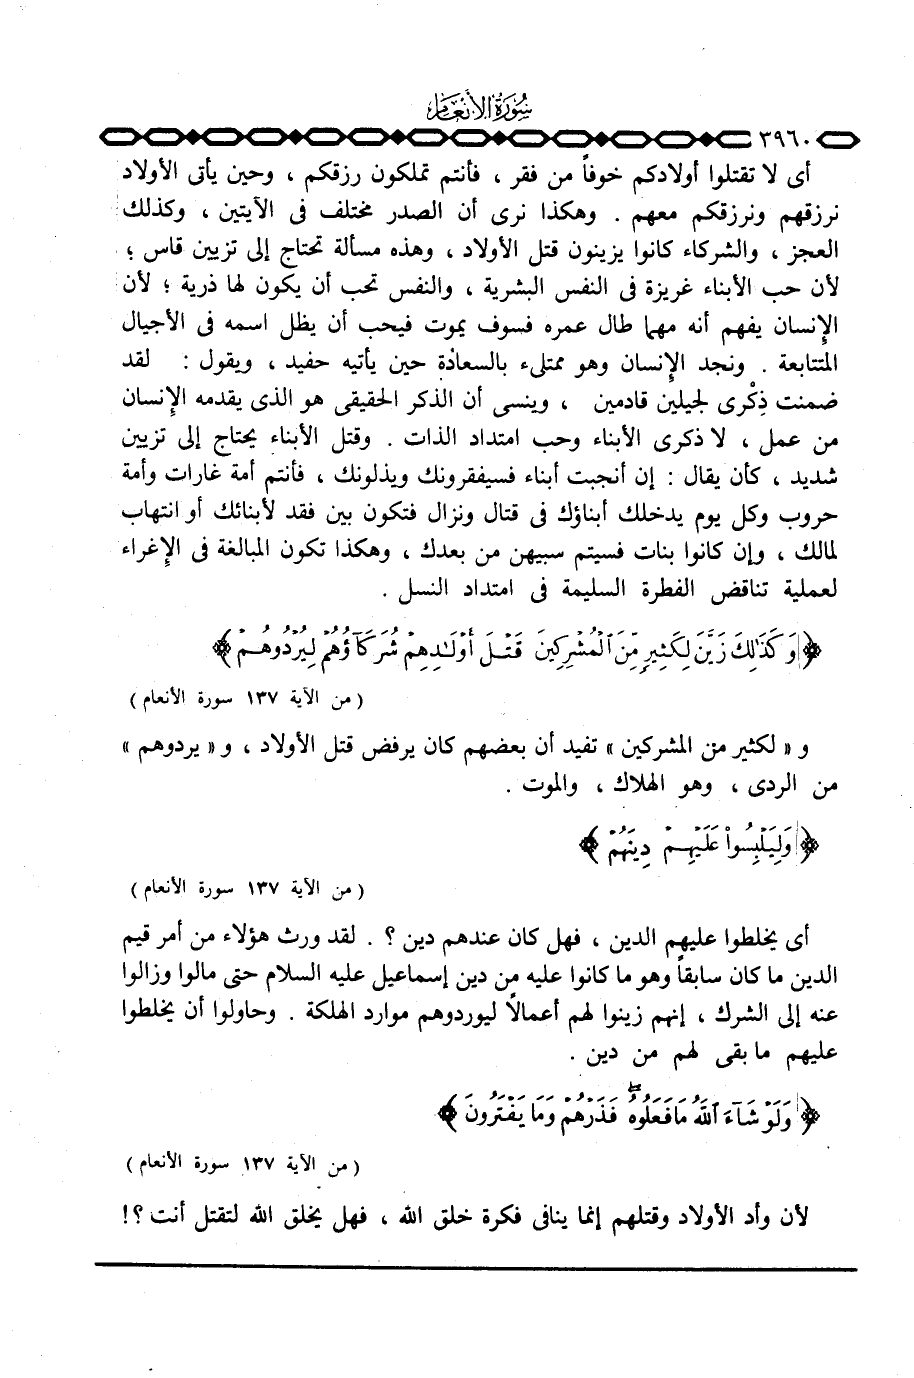 سورة الأنعام
٣٩٦٠
أى لا تقتلوا أولادكم خوفاً من فقر ، فأنتم تملكون رزقكم ، وحين يأتى الأولاد
نرزقهم ونرزقكم معهم . وهكذا نرى أن الصدر مختلف فى الآيتين ، وكذلك
العجز ، والشركاء كانوا يزينون قتل الأولاد ، وهذه مسألة تحتاج إلى تزيين قاس ؛
لأن حب الأبناء غريزة فى النفس البشرية ، والنفس تحب أن يكون لها ذرية ؛ لأن
الإنسان يفهم أنه مهما طال عمره فسوف يموت فيحب أن يظل اسمه فى الأجيال
المتتابعة . ونجد الإنسان وهو ممتلىء بالسعادة حين يأتيه حفيد ، ويقول : لقد
ضمنت ذِكْرى لجيلين قادمين ، وينسى أن الذكر الحقيقى هو الذى يقدمه الإنسان
من عمل ، لا ذكرى الأبناء وحب امتداد الذات . وقتل الأبناء يحتاج إلى تزيين
شديد ، كأن يقال : إن أنجبت أبناء فسيفقرونك ويذلونك ، فأنتم أمة غارات وأمة
حروب وكل يوم يدخلك أبناؤك فى قتال ونزال فتكون بين فقد لأبنائك أو انتهاب
لمالك ، وإن كانوا بنات فسيتم سبيهن من بعدك ، وهكذا تكون المبالغة فى الإغراء
لعملية تناقض الفطرة السليمة فى امتداد النسل .
﴿ وَكَذَٰلِكَ زَيَّنَ لِكَثِيرٍ مِّنَ ٱلْمُشْرِكِينَ قَتْلَ أَوْلَٰدِهِمْ شُرَكَآؤُهُمْ لِيُرْدُوهُمْ ﴾
( من الآية ١٣٧ سورة الأنعام )
و « لكثير من المشركين » تفيد أن بعضهم كان يرفض قتل الأولاد ، و « يردوهم »
من الردى ، وهو الهلاك ، والموت .
﴿ وَلِيَلْبِسُوا۟ عَلَيْهِمْ دِينَهُمْ ﴾
( من الآية ١٣٧ سورة الأنعام )
أى يخلطوا عليهم الدين ، فهل كان عندهم دين ؟ . لقد ورث هؤلاء من أمر قيم
الدين ما كان سابقاً وهو ما كانوا عليه من دين إسماعيل عليه السلام حتى مالوا وزالوا
عنه إلى الشرك ، إنهم زينوا لهم أعمالاً ليوردوهم موارد الهلكة . وحاولوا أن يخلطوا
عليهم ما بقى لهم من دين .
﴿ وَلَوْ شَآءَ ٱللَّهُ مَا فَعَلُوهُ ۖ فَذَرْهُمْ وَمَا يَفْتَرُونَ ﴾
( من الآية ١٣٧ سورة الأنعام )
لأن وأد الأولاد وقتلهم إنما ينافى فكرة خلق الله ، فهل يخلق الله لتقتل أنت ؟!